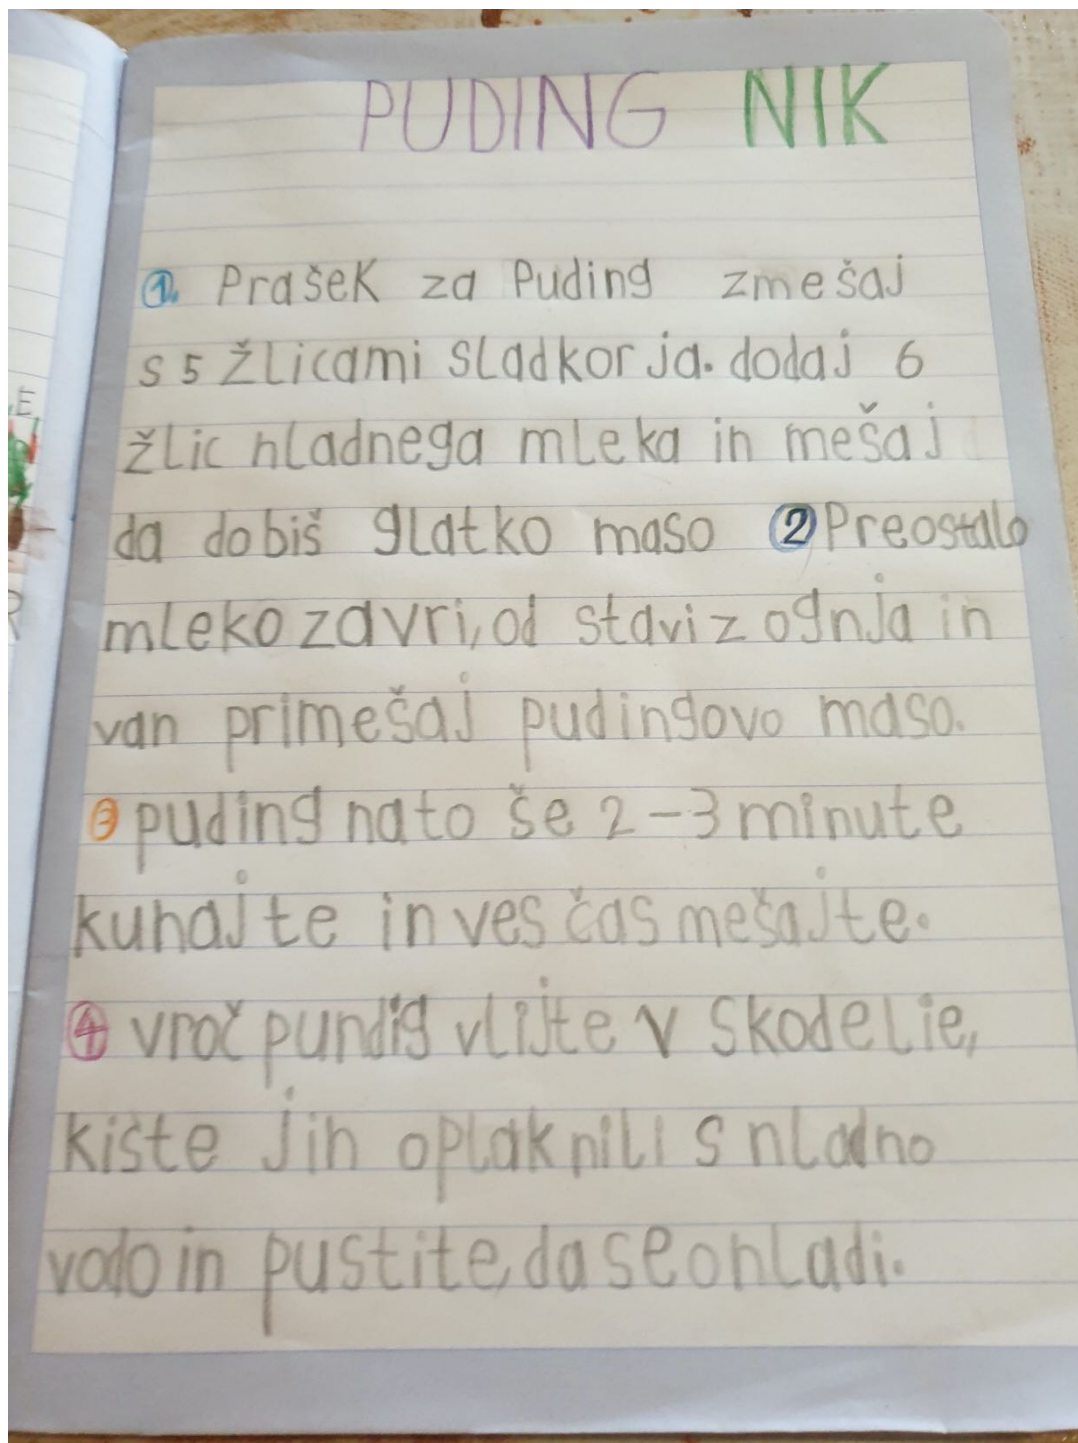 PUDING NIK
1. Prašek za Puding zmešaj
s 5 žlicami sladkorja. dodaj 6
žlic hladnega mleka in mešaj
da dobiš glatko maso 2 Preostalo
mleko zavri, od stavi z ognja in
van primešaj pudingovo maso.
3 puding nato še 2-3 minute
kuhajte in ves čas mešajte.
4 vroč pundig vlijte v skodelie,
kiste jih oplaknili s hladno
vodo in pustite, da se ohladi.
E